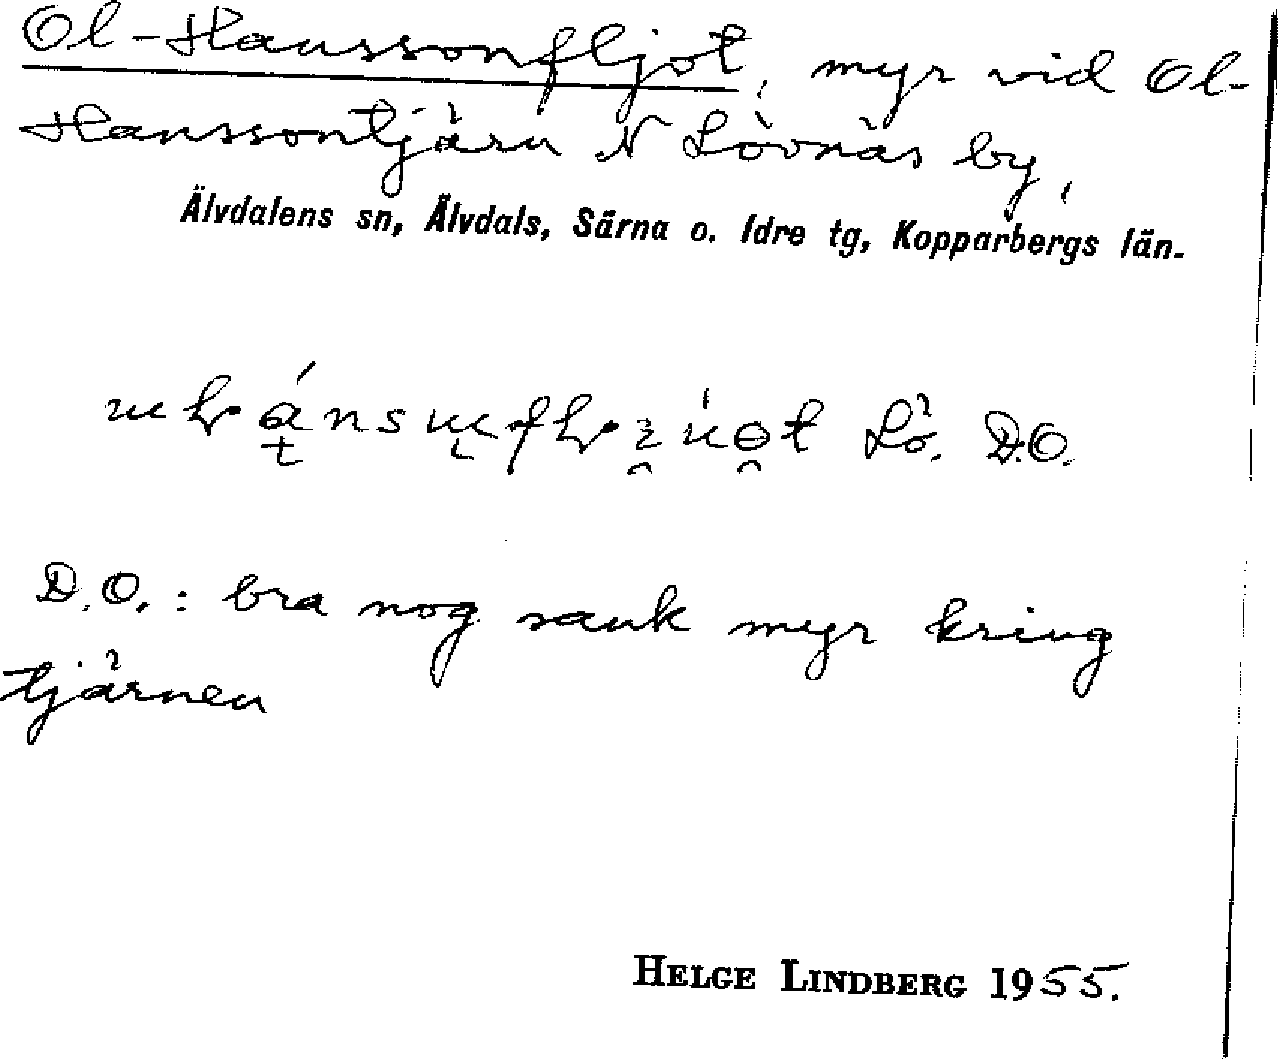 Ol-Hanssonfljot, myr vid Ol-
Hanssontjärn N Lövnäs by,
Älvdalens sn, Älvdals, Särna o. Idre tg, Kopparbergs län.
Lö. D.O.
D.O.: bra nog sank myr kring
tjärnen
HELGE LINDBERG 1955.